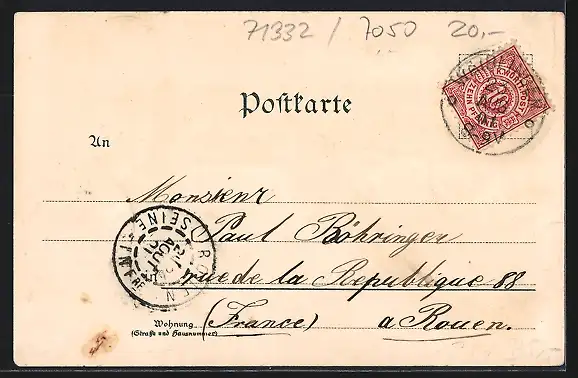 71332 / 7050 20,-
Postkarte
An
Monsieur
Paul Böhringer
rue de la Republique 88
(France) a Rouen.
Wohnung
(Straße und Hausnummer)
ROUEN
AOUT
01
SEINE
10
K.WÜRTT.POST
ZEHN PFENNIG